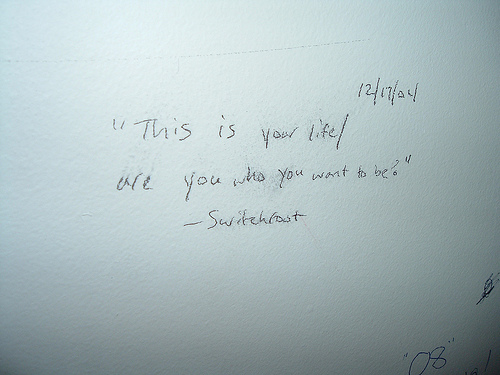 12/17/04
"This is your life/
are you who you want to be?"
—Switchfoot
"08"